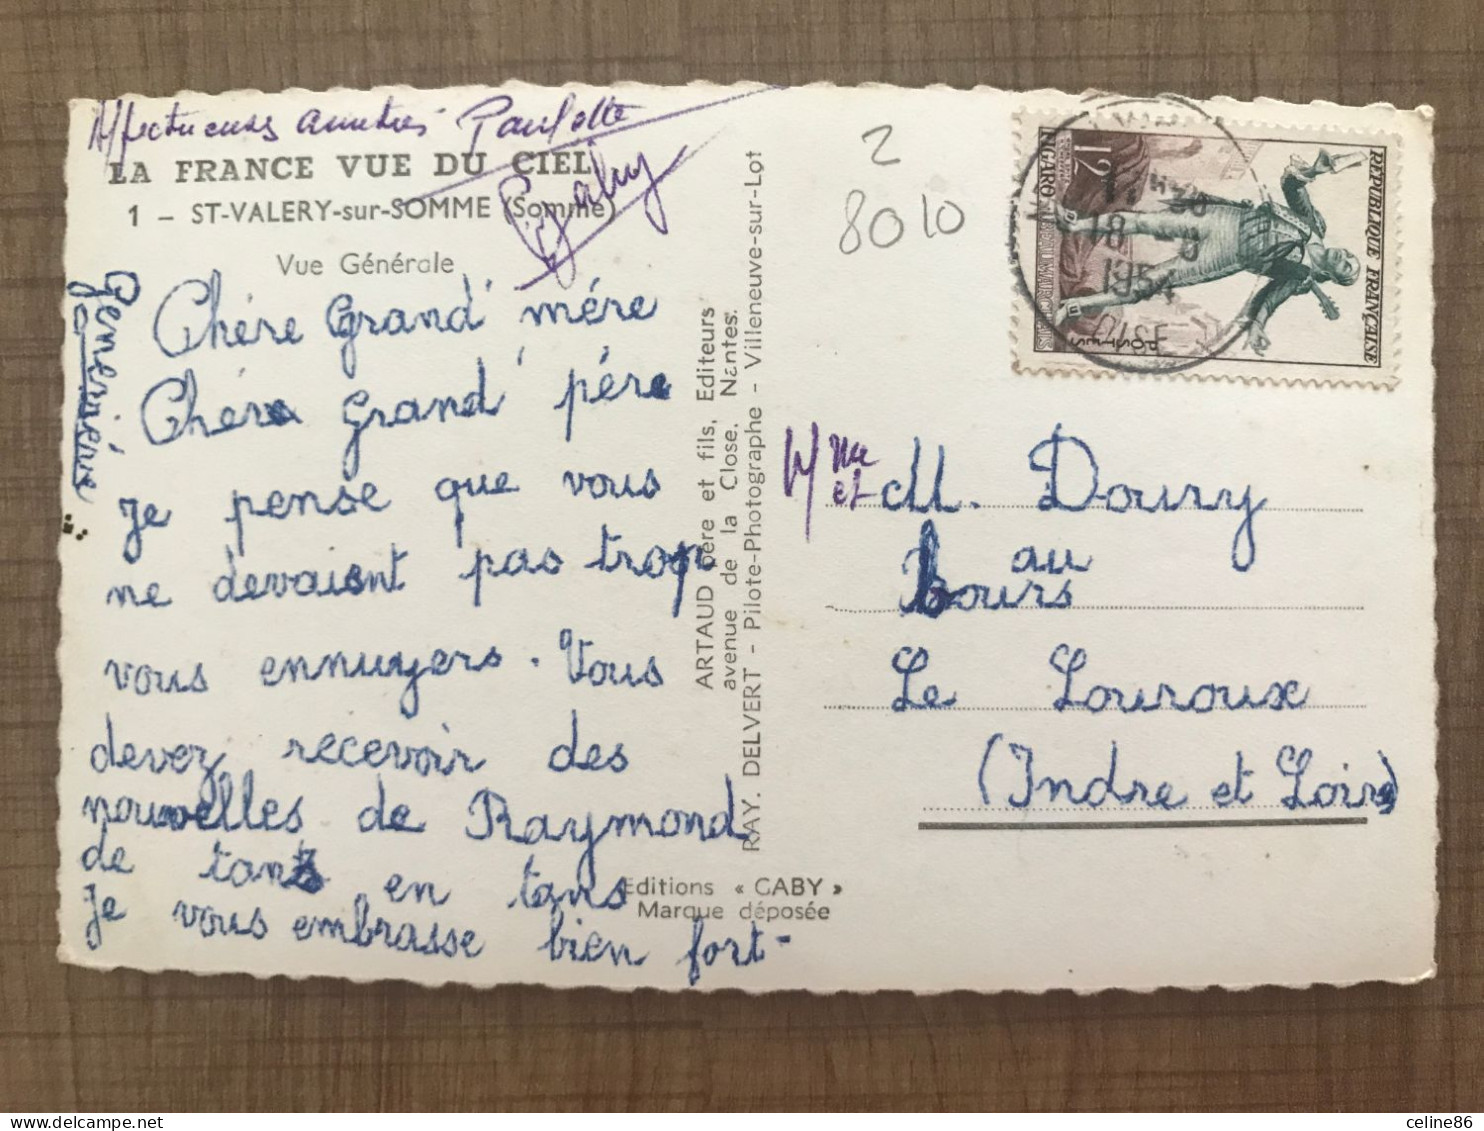 Affectueuses amitiés Paulette
Gaby
LA FRANCE VUE DU CIEL
1 - ST-VALERY-sur-SOMME (Somme)
Vue Générale
Chère Grand' mére
Chére Grand' pére
je pense que vous
ne devaiont pas trop
vous ennuyers. Vous
devez recevoir des
nouvelles de Raymond
de tants en tans
je vous embrasse bien fort-
Geneviève
ARTAUD père et fils, Editeurs
avenue de la Close. Nantes.
RAY. DELVERT - Pilote-Photographe - Villeneuve-sur-Lot
Editions « GABY »
Marque déposée
2
8010
REPUBLIQUE FRANÇAISE
12F
FIGARO
POSTES
18 - 8
1954
OISE
Mme et M. Doury
au
Bours
Le Louroux
(Indre et Loire)
celine86